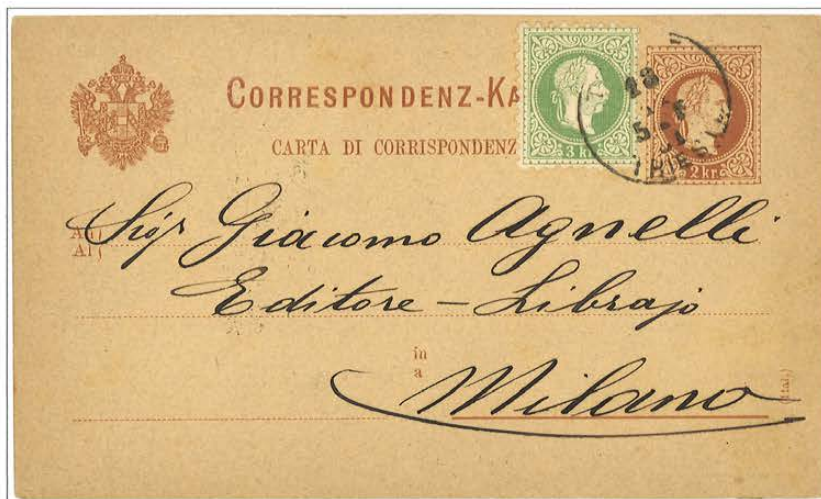 CORRESPONDENZ-KA
CARTA DI CORRISPONDENZ
3 kr.
2 kr.
18
5
TRIEST
An
Al
Sigr Giacomo Agnelli
Editore - Librajo
in
a
Milano
(Ital.)